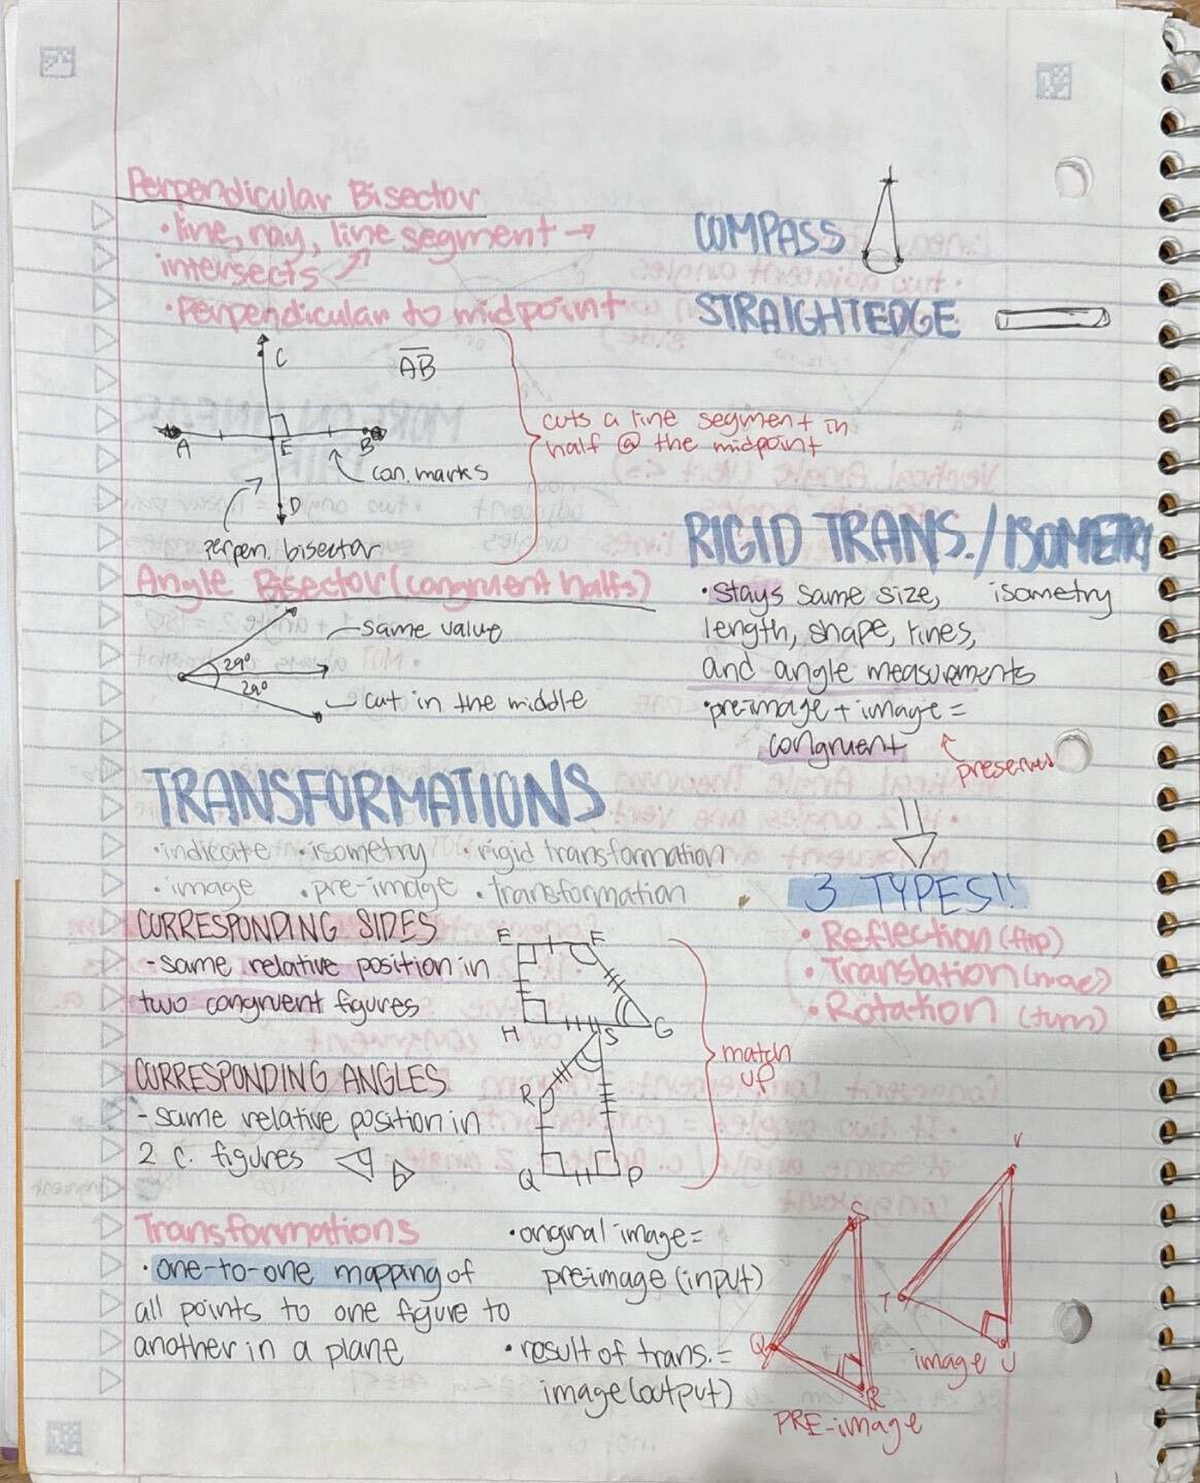 Perpendicular Bisector
• line, ray, line segment →
intersects ↗
• Perpendicular to midpoint
C
AB
A
E
B
con. marks
D
perpen. bisector
cuts a line segment in
half @ the midpoint
Angle Bisector (congruent halfs)
same value
29°
29°
cut in the middle
COMPASS
STRAIGHTEDGE
RIGID TRANS. / ISOMETRY
• stays same size, isometry
length, shape, lines,
and angle measurements
• pre-image + image =
congruent
preserved
3 TYPES!!
• Reflection (flip)
• Translation
• Rotation (turn)
TRANSFORMATIONS
• indicate • isometry • rigid transformation
• image • pre-image • transformation
CORRESPONDING SIDES
- same relative position in
two congruent figures
E F
H G
S
R
Q P
match
up
CORRESPONDING ANGLES
- same relative position in
2 c. figures
Transformations
• one-to-one mapping of
all points to one figure to
another in a plane
• original image =
pre-image (input)
• result of trans. =
image (output)
S
Q
R
PRE-image
V
T
U
image